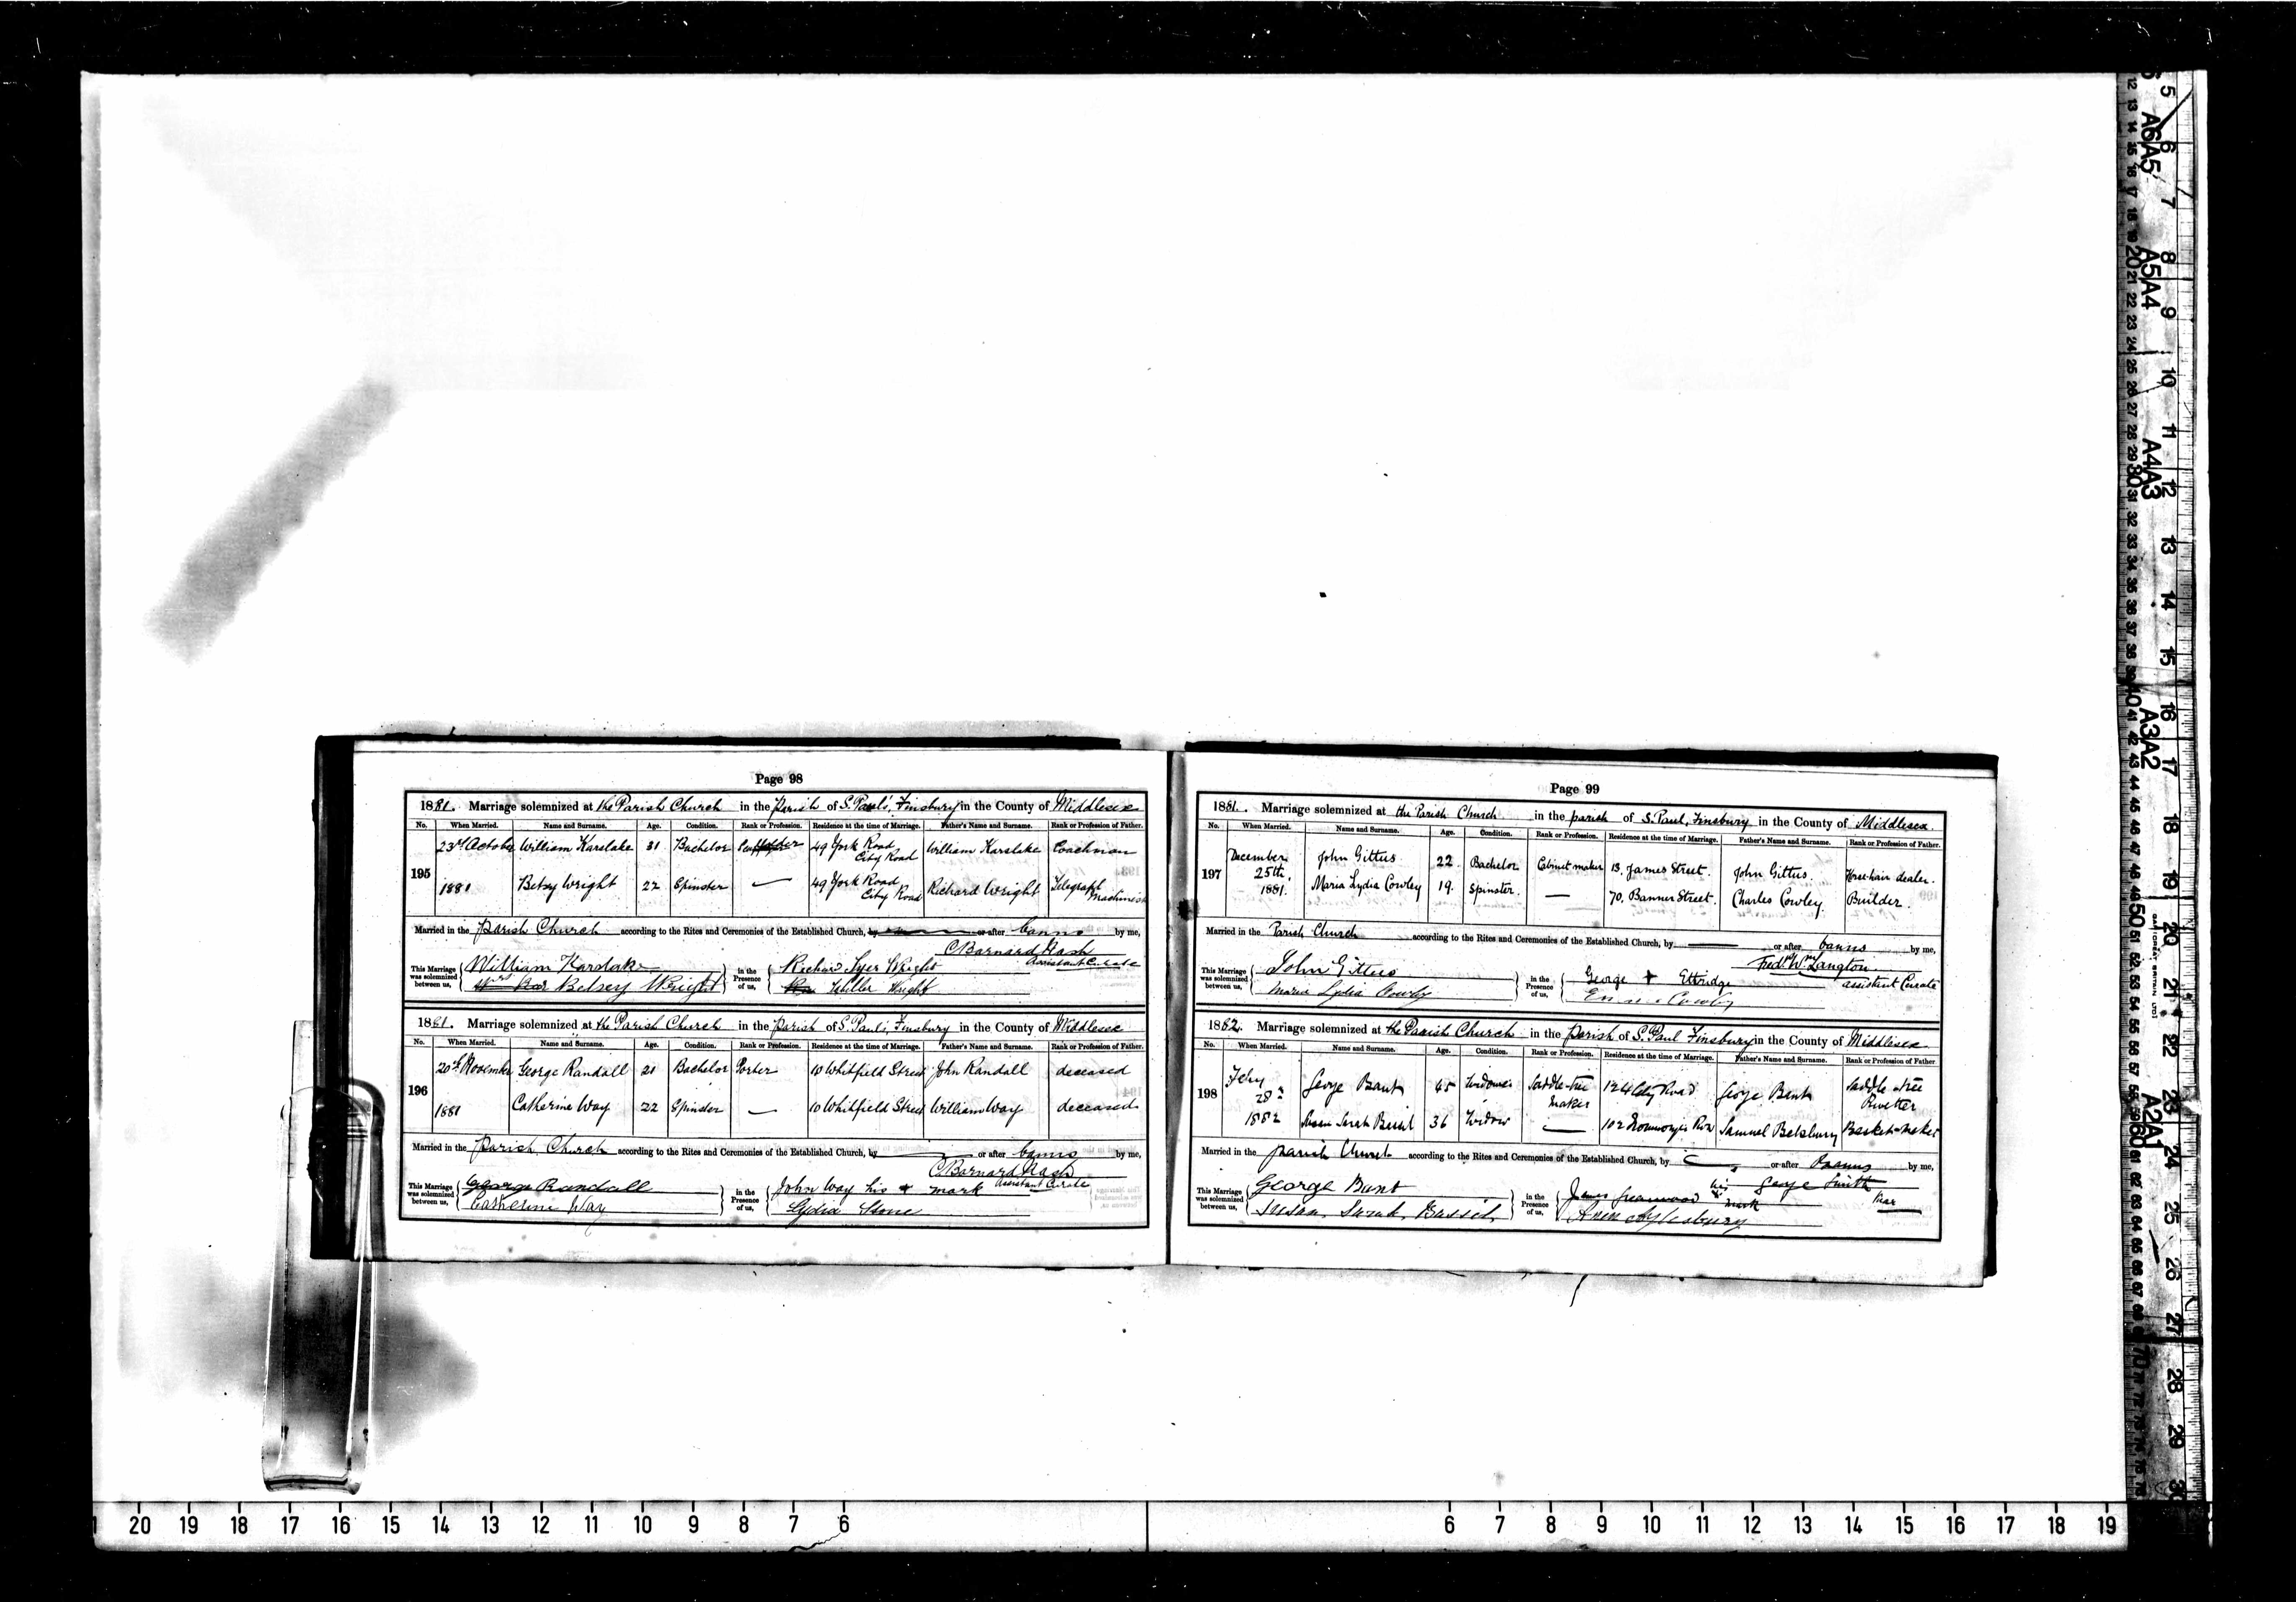 Page 98
1881. Marriage solemnized at the Parish Church in the Parish of S. Paul's, Finsbury in the County of Middlesex
No. When Married. Name and Surname. Age. Condition. Rank or Profession. Residence at the time of Marriage. Father's Name and Surname. Rank or Profession of Father.
195 23rd October 1881 William Karslake 31 Bachelor 49 York Road City Road William Karslake Coachman
Betsy Wright 22 Spinster — 49 York Road City Road Richard Wright Telegraph Machinist
Married in the Parish Church according to the Rites and Ceremonies of the Established Church, by or after banns by me,
C Barnard Nash
Assistant Curate
This Marriage was solemnized between us, William Karslake
Betsey Wright
in the Presence of us, Richard Syer Wright
Wright
1881. Marriage solemnized at the Parish Church in the Parish of S. Paul's, Finsbury in the County of Middlesex
No. When Married. Name and Surname. Age. Condition. Rank or Profession. Residence at the time of Marriage. Father's Name and Surname. Rank or Profession of Father.
196 20th November 1881 George Randall 21 Bachelor Porter 10 Whitfield Street John Randall deceased
Catherine Way 22 Spinster — 10 Whitfield Street William Way deceased
Married in the Parish Church according to the Rites and Ceremonies of the Established Church, by or after banns by me,
C Barnard Nash
Assistant Curate
This Marriage was solemnized between us, George Randall
Catherine Way
in the Presence of us, John Way his + mark
Lydia Stone
Page 99
1881. Marriage solemnized at the Parish Church in the parish of S. Paul, Finsbury in the County of Middlesex.
No. When Married. Name and Surname. Age. Condition. Rank or Profession. Residence at the time of Marriage. Father's Name and Surname. Rank or Profession of Father.
197 December 25th, 1881. John Gittus 22 Bachelor Cabinet maker 13, James Street. John Gittus. Horse-hair dealer.
Maria Lydia Cowley 19. Spinster. — 70, Banner Street. Charles Cowley. Builder.
Married in the Parish Church according to the Rites and Ceremonies of the Established Church, by or after banns by me,
Fredk. Wm. Langton.
assistant Curate
This Marriage was solemnized between us, John Gittus
Maria Lydia Cowley
in the Presence of us, George + Ettridge
Cowley
1882. Marriage solemnized at the Parish Church in the Parish of S. Paul Finsbury in the County of Middlesex
No. When Married. Name and Surname. Age. Condition. Rank or Profession. Residence at the time of Marriage. Father's Name and Surname. Rank or Profession of Father
198 Feby 28 1882 George Bant 45 Widower Saddle-tree Maker 124 City Road George Bant Saddle tree Rivetter
Susan Sarah 36 Widow — 102 Row Samuel Basket-maker
Married in the Parish Church according to the Rites and Ceremonies of the Established Church, by or after Banns by me,
George Smith
Vicar
This Marriage was solemnized between us, George Bant
Susan Sarah Bassil
in the Presence of us, James Greenwood his x mark
Ann Aylesbury
20 19 18 17 16 15 14 13 12 11 10 9 8 7 6 6 7 8 9 10 11 12 13 14 15 16 17 18 19